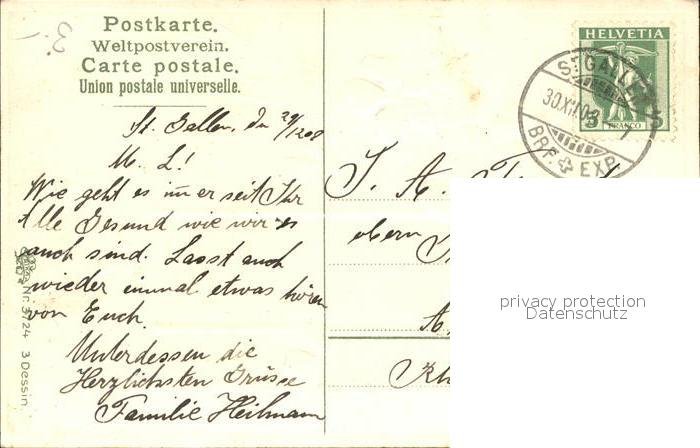 Postkarte.
Weltpostverein.
Carte postale.
Union postale universelle.
St. Gallen, den 29/12 08
M. L!
Wie geht es im̄er seit Ihr
Alle Gesund wie wir es
auch sind. Lasst auch
wieder einmal etwas hören
von Euch.
Unterdessen die
Herzlichsten Grüsse
Familie Heilmann
Nr. 3724 3 Dessin
HELVETIA
5 5
FRANCO
ST. GALLEN
30.XII.08
BRF. EXP.
J. A.
obern
A.
Rh
privacy protection
Datenschutz